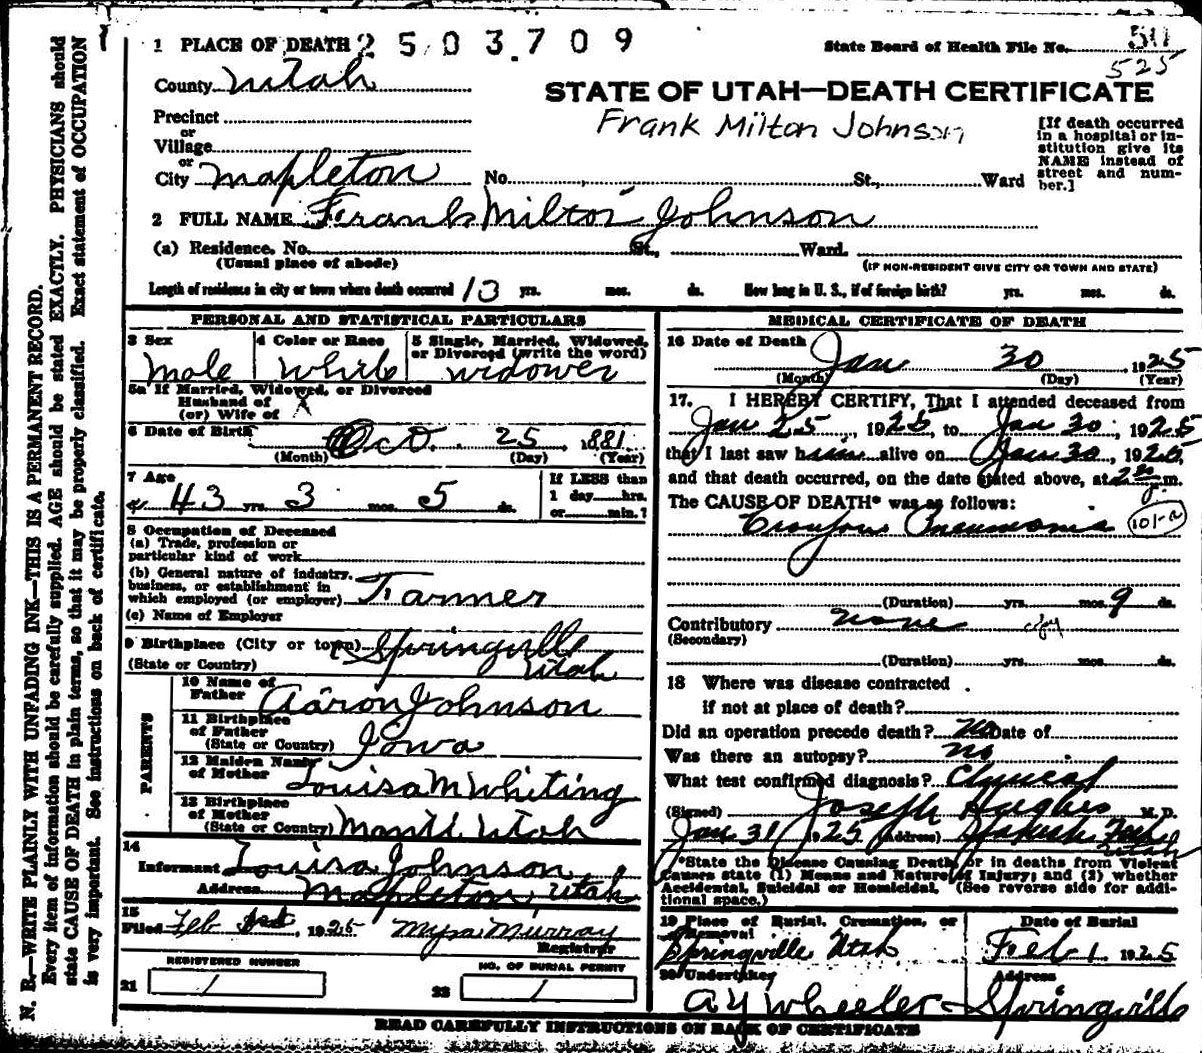 1 PLACE OF DEATH 2503709
State Board of Health File No.
525
County Utah
STATE OF UTAH—DEATH CERTIFICATE
Frank Milton Johnson
Precinct
or
Village
or
City Mapleton No. St., Ward
[If death occurred
in a hospital or in-
stitution give its
NAME instead of
street and num-
ber.]
2 FULL NAME Frank Milton Johnson
(a) Residence, No. St., Ward.
(Usual place of abode) (IF NON-RESIDENT GIVE CITY OR TOWN AND STATE)
Length of residence in city or town where death occurred 13 yrs. mos. ds. How long in U. S., if of foreign birth? yrs. mos. ds.
PERSONAL AND STATISTICAL PARTICULARS
3 Sex 4 Color or Race 5 Single, Married, Widowed,
or Divorced (write the word)
Male White widower
5a If Married, Widowed, or Divorced
Husband of
(or) Wife of X
6 Date of Birth Oct. 25, 1881
(Month) (Day) (Year)
7 Age
43 yrs. 3 mos. 5 ds.
If LESS than
1 day hrs.
or min.?
8 Occupation of Deceased
(a) Trade, profession or
particular kind of work
(b) General nature of industry,
business, or establishment in
which employed (or employer) Farmer
(c) Name of Employer
9 Birthplace (City or town) Springville
(State or Country) Utah
PARENTS
10 Name of
Father Aaron Johnson
11 Birthplace
of Father
(State or Country) Iowa
12 Maiden Name
of Mother Louisa M Whiting
13 Birthplace
of Mother
(State or Country) Manti Utah
14
Informant Louisa Johnson
Address Mapleton, Utah
15
Filed Feb 1925 Myra Murray
Registrar
REGISTERED NUMBER NO. OF BURIAL PERMIT
21 1 22 1
MEDICAL CERTIFICATE OF DEATH
16 Date of Death Jan 30 1925
(Month) (Day) (Year)
17. I HEREBY CERTIFY, That I attended deceased from
Jan 25, 1925, to Jan 30, 1925
that I last saw him alive on Jan 30, 1925,
and that death occurred, on the date stated above, at 2 m.
The CAUSE OF DEATH* was as follows:
Croupous Pneumonia 101-a
(Duration) yrs. mos. 9 ds.
Contributory none
(Secondary)
(Duration) yrs. mos. ds.
18 Where was disease contracted
if not at place of death?
Did an operation precede death? No Date of
Was there an autopsy? no
What test confirmed diagnosis? Clynical
(Signed) Joseph Hughes M. D.
Jan 31 1925 (Address) Spanish Fork
Utah
*State the Disease Causing Death, or in deaths from Violent
Causes state (1) Means and Nature of Injury; and (2) whether
Accidental, Suicidal or Homicidal. (See reverse side for addi-
tional space.)
19 Place of Burial, Cremation, or
Removal
Date of Burial
Springville Utah Feb 1 1925
20 Undertaker Address
A Y Wheeler - Springville
READ CAREFULLY INSTRUCTIONS ON BACK OF CERTIFICATE
N. B.—WRITE PLAINLY WITH UNFADING INK—THIS IS A PERMANENT RECORD.
Every item of information should be carefully supplied. AGE should be stated EXACTLY. PHYSICIANS should
state CAUSE OF DEATH in plain terms, so that it may be properly classified. Exact statement of OCCUPATION
is very important. See instructions on back of certificate.